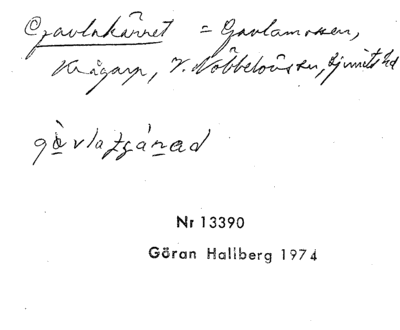 Gavlakärret = Gavlamossen,
Krågarp, V. Nöbbelövs sn, Ljunits hd
gàvlatʒánad
Nr 13390
Göran Hallberg 1974